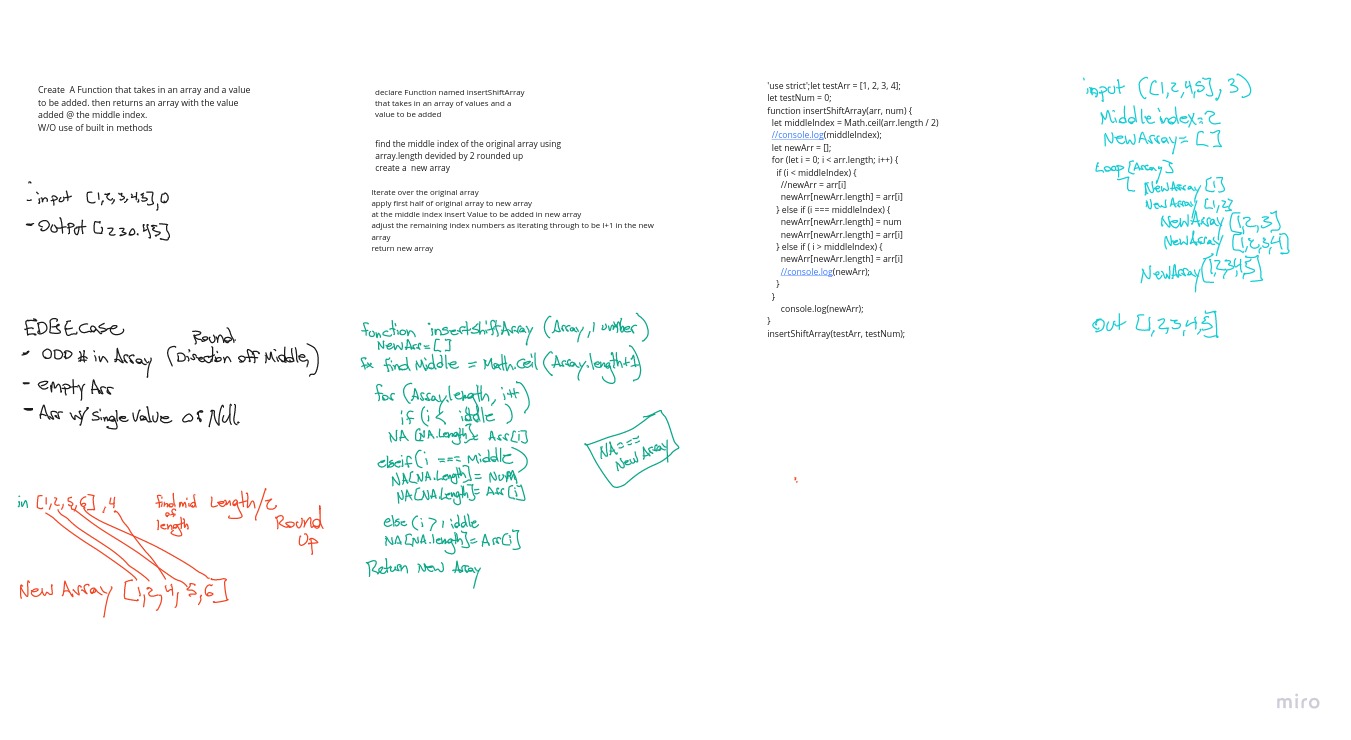 Create A Function that takes in an array and a value
to be added. then returns an array with the value
added @ the middle index.
W/O use of built in methods
- input [1,2,3,4,5],0
- OutPut [1,2 3 0. 4 5]
EDGE case
- ODD # in Array (Direction off Middle,)
Round
- empty Arr
- Arr w/ single Value or Null
in [1,2,5,6] , 4
find mid
of
length
Length/2
Round
Up
New Array [1,2,4,5,6]
declare Function named insertShiftArray
that takes in an array of values and a
value to be added
find the middle index of the original array using
array.length devided by 2 rounded up
create a new array
Iterate over the original array
apply first half of original array to new array
at the middle index insert Value to be added in new array
adjust the remaining index numbers as iterating through to be I+1 in the new
array
return new array
function insertshiftArray (Array, number)
NewArr=[]
find Middle = Math.ceil (Array.length+1)
for (Array.length, i++)
if (i < iddle )
NA [NA.Length]= Arr[i]
elseif (i === Middle)
NA[NA.Length] = Num
NA[NA.Length]= Arr[i]
else (i > iddle
NA[NA.length]=Arr[i]
Return New Array
NA===
New Array
'use strict';let testArr = [1, 2, 3, 4];
let testNum = 0;
function insertShiftArray(arr, num) {
let middleIndex = Math.ceil(arr.length / 2)
//console.log(middleIndex);
let newArr = [];
for (let i = 0; i < arr.length; i++) {
if (i < middleIndex) {
//newArr = arr[i]
newArr[newArr.length] = arr[i]
} else if (i === middleIndex) {
newArr[newArr.length] = num
newArr[newArr.length] = arr[i]
} else if ( i > middleIndex) {
newArr[newArr.length] = arr[i]
//console.log(newArr);
}
}
console.log(newArr);
}
insertShiftArray(testArr, testNum);
input ([1,2,4,5], 3)
Middle index=2
NewArray= []
Loop [Array]
NewArray [1]
NewArray [1,2]
NewArray [1,2,3]
NewArray [1,2,3,4]
NewArray [1,2,3,4,5]
Out [1,2,3,4,5]
miro